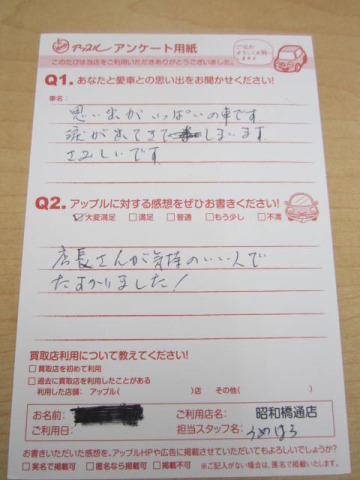 アップル アンケート用紙
このたびは当店をご利用いただきありがとうございました。
Q1. あなたと愛車との思い出をお聞かせください!
車名:
思い出が いっぱいの車です
涙が出てきてしまいます
さみしいです
Q2. アップルに対する感想をぜひお書きください!
☑大変満足 □満足 □普通 □もう少し □不満
店長さんが気持のいい人で
たすかりました!
買取店利用について教えてください!
□買取店を初めて利用
□過去に買取店を利用したことがある
利用した店舗: アップル( )店 その他( )
お名前: ご利用店名: 昭和橋通店
ご利用日: 担当スタッフ名: うめはら
お書きいただいた感想を、アップルHPや広告に掲載させていただいてもよろしいでしょうか?
□実名で掲載可 □匿名なら掲載可 □掲載不可 ※ご記入がない場合は、匿名で掲載いたします。